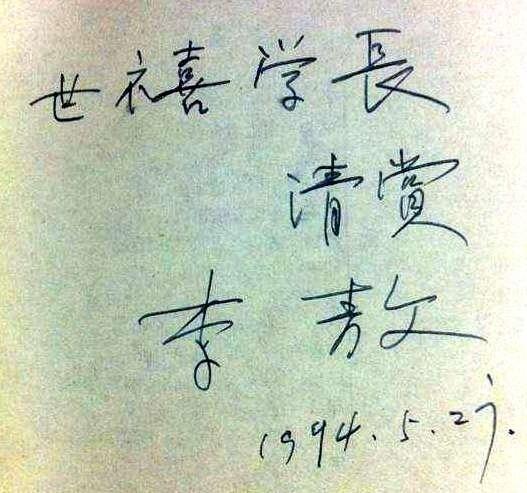 世禧学長
清賞
李敖
1994.5.27.